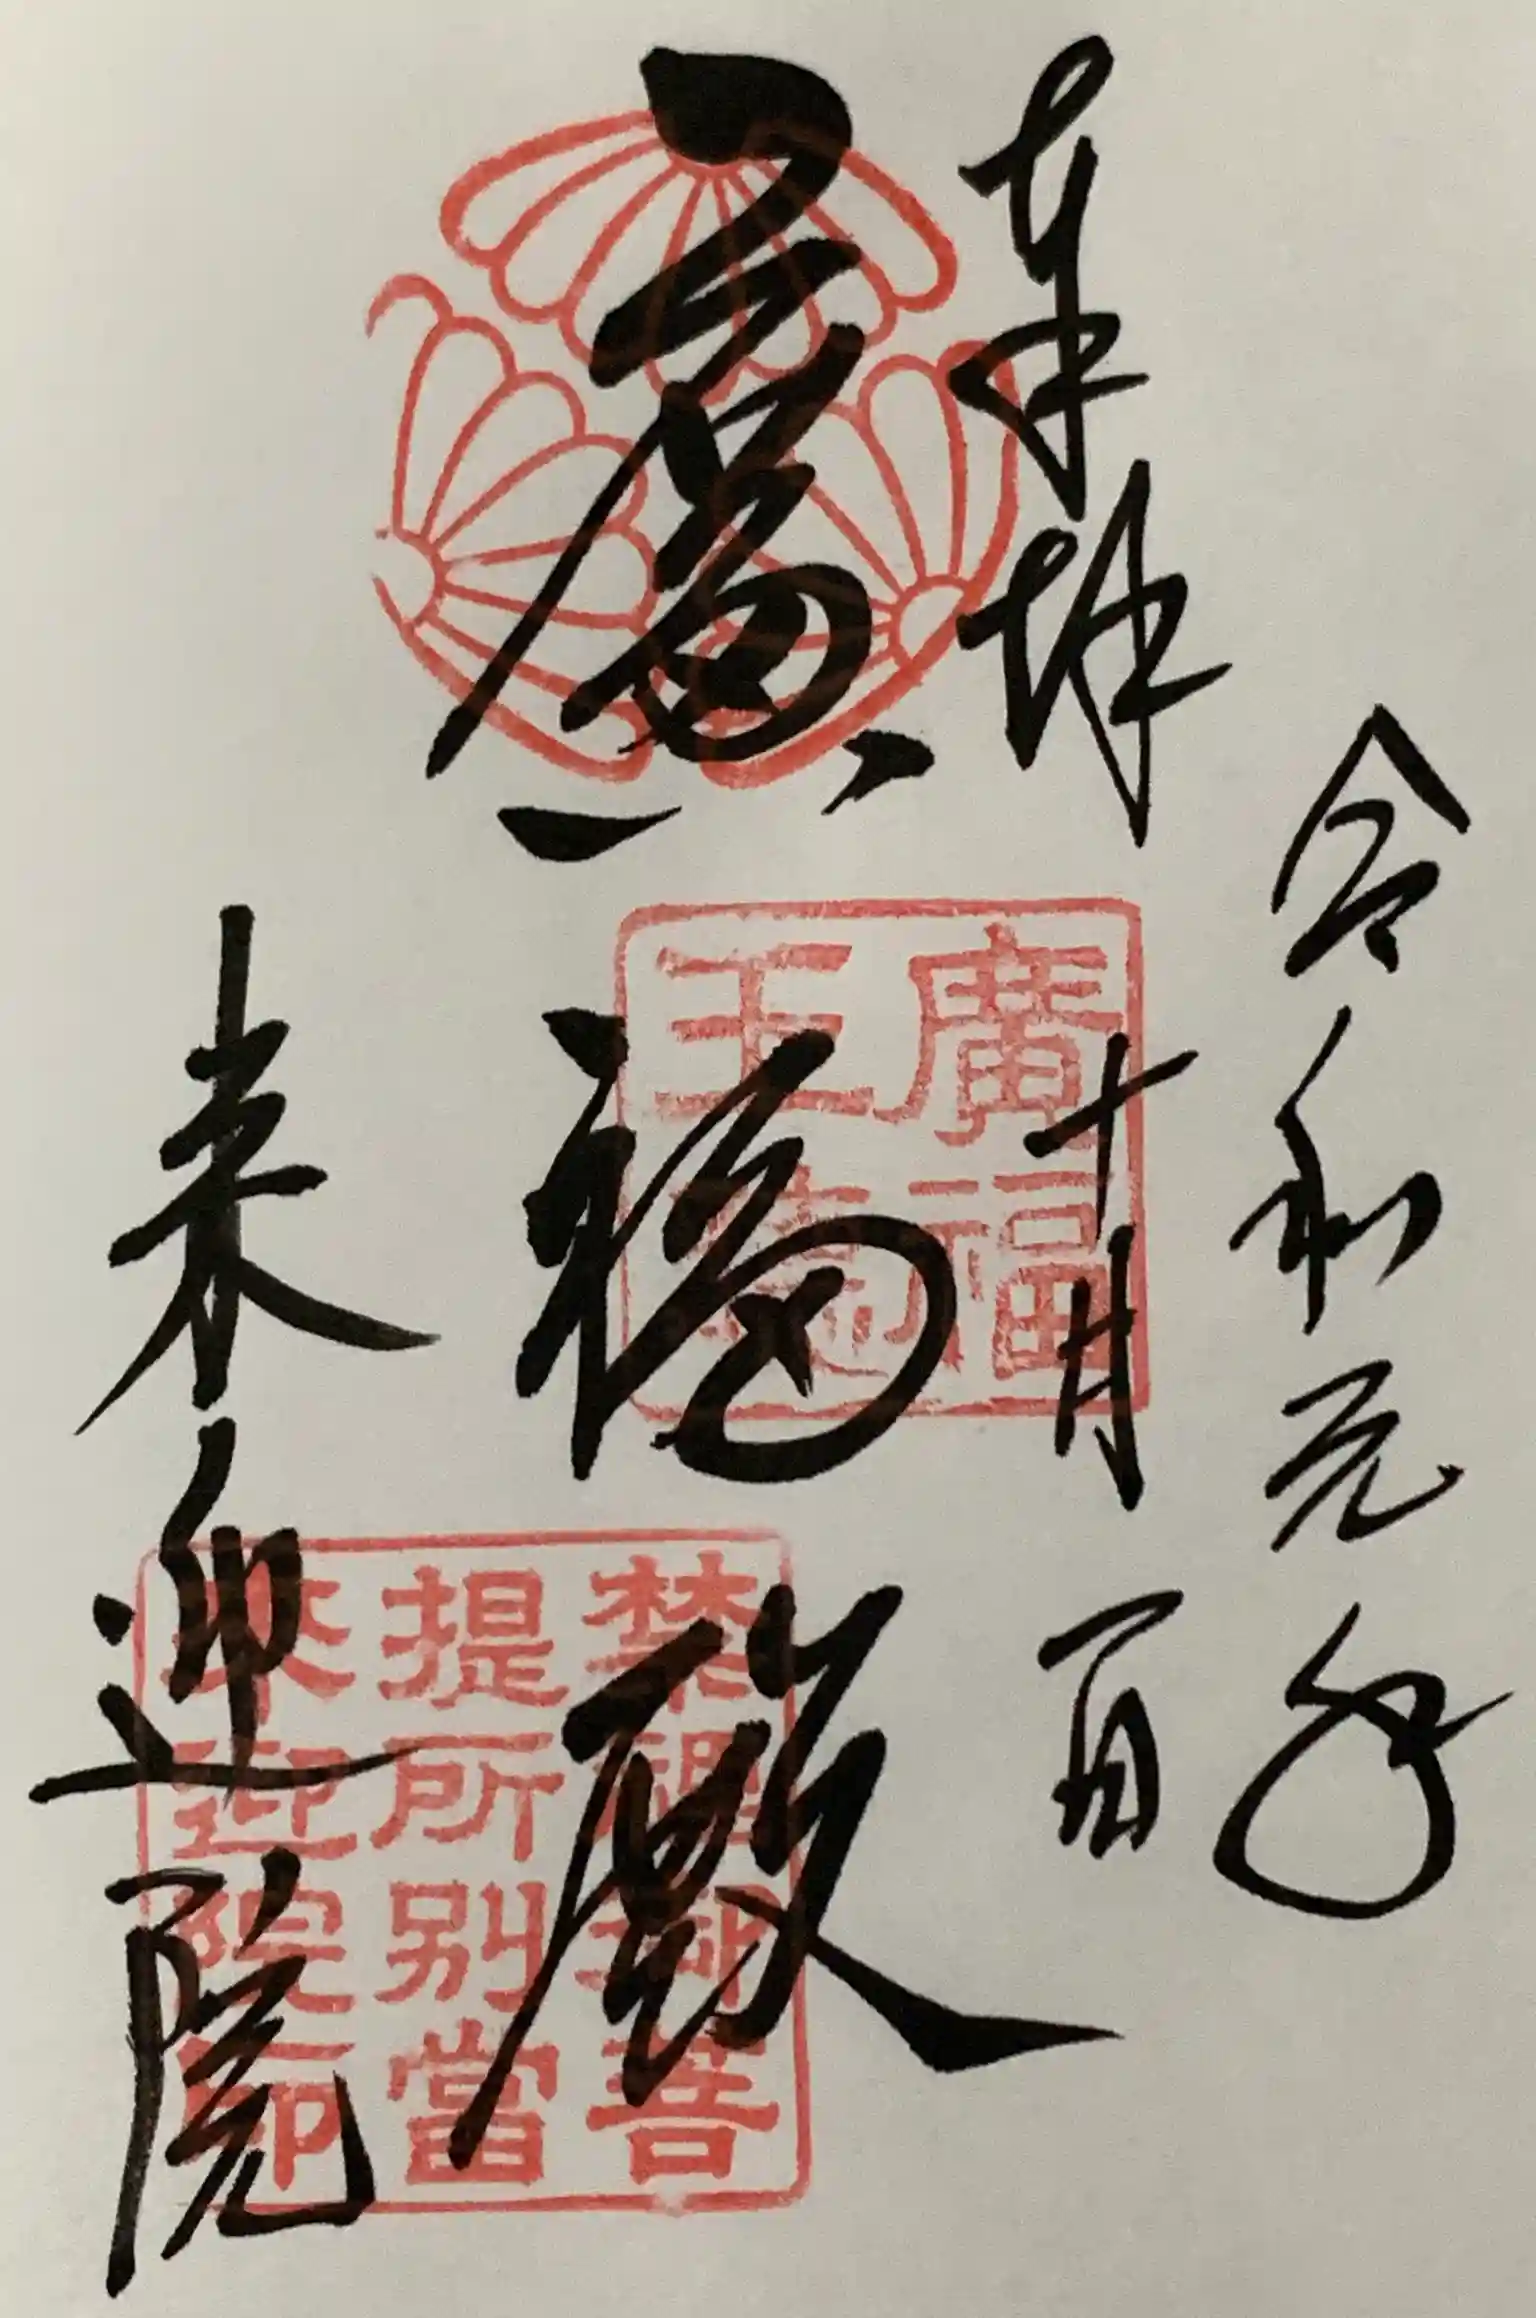 令和元年
奉拝
十月一日
廣福殿
来迎院
廣福
王
禁裡御菩
提所別當
来迎院印